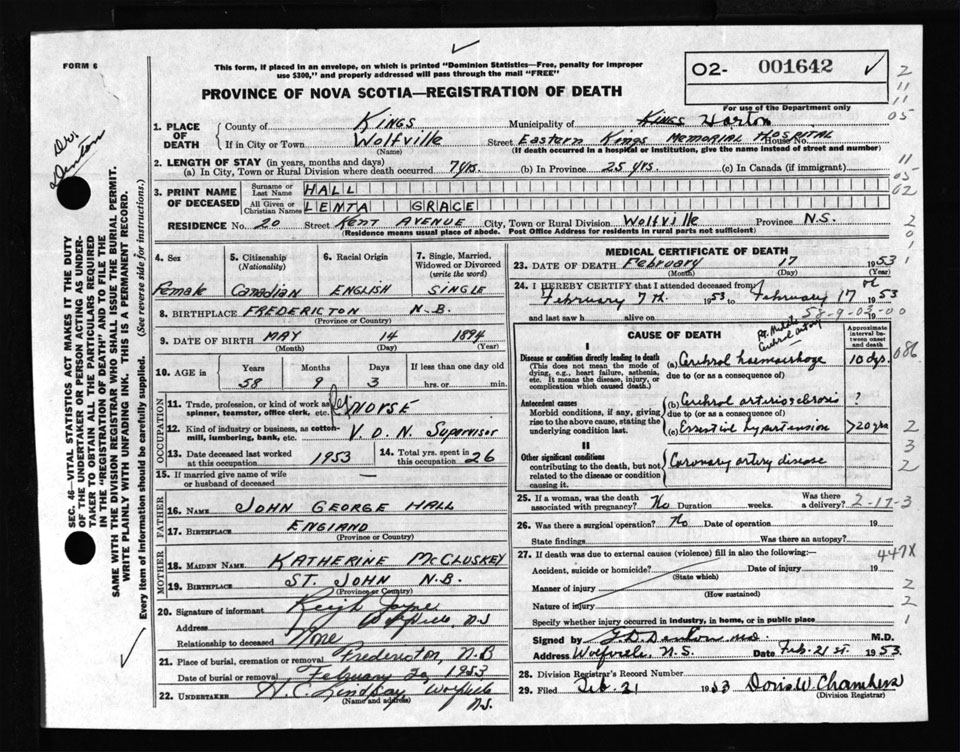 FORM 6
This form, if placed in an envelope, on which is printed "Dominion Statistics—Free, penalty for improper
use $300," and properly addressed will pass through the mail "FREE"
PROVINCE OF NOVA SCOTIA—REGISTRATION OF DEATH
O2- 001642
For use of the Department only
Dr. Denton
SEC. 46—VITAL STATISTICS ACT MAKES IT THE DUTY
OF THE UNDERTAKER OR PERSON ACTING AS UNDER-
TAKER TO OBTAIN ALL THE PARTICULARS REQUIRED
IN THE "REGISTRATION OF DEATH" AND TO FILE THE
SAME WITH THE DIVISION REGISTRAR WHO SHALL ISSUE THE BURIAL PERMIT.
WRITE PLAINLY WITH UNFADING INK. THIS IS A PERMANENT RECORD.
Every item of information should be carefully supplied. (See reverse side for instructions.)
1. PLACE OF DEATH
County of Kings Municipality of Kings Horton
If in City or Town Wolfville (Name) Street Eastern Kings Memorial Hospital House No.
(If death occurred in a hospital or institution, give the name instead of street and number)
2. LENGTH OF STAY (in years, months and days)
(a) In City, Town or Rural Division where death occurred 7 yrs. (b) In Province 25 yrs. (c) In Canada (if immigrant)
3. PRINT NAME OF DECEASED
Surname or Last Name HALL
All Given or Christian Names LENTA GRACE
RESIDENCE No. 20 Street Kent Avenue City, Town or Rural Division Wolfville Province N.S.
(Residence means usual place of abode. Post Office Address for residents in rural parts not sufficient)
4. Sex
Female
5. Citizenship (Nationality)
Canadian
6. Racial Origin
English
7. Single, Married, Widowed or Divorced (write the word)
Single
8. BIRTHPLACE Fredericton N.B.
(Province or Country)
9. DATE OF BIRTH May 14 1894
(Month) (Day) (Year)
10. AGE in Years Months Days If less than one day old
58 9 3 hrs. or min.
11. Trade, profession, or kind of work as
spinner, teamster, office clerk, etc. Nurse
12. Kind of industry or business, as cotton-
mill, lumbering, bank, etc. V.O.N. Supervisor
13. Date deceased last worked
at this occupation 1953
14. Total yrs. spent in
this occupation 26
15. If married give name of wife
or husband of deceased
FATHER
16. NAME John George Hall
17. BIRTHPLACE England
(Province or Country)
MOTHER
18. MAIDEN NAME Katherine McCluskey
19. BIRTHPLACE St. John N.B.
(Province or Country)
20. Signature of informant
Address Wolfville, N.S.
Relationship to deceased None
21. Place of burial, cremation or removal Fredericton, N.B
Date of burial or removal February 20, 1953
22. UNDERTAKER H. C. Lindsay Wolfville N.S.
(Name and address)
MEDICAL CERTIFICATE OF DEATH
23. DATE OF DEATH February 17 1953
(Month) (Day) (Year)
24. I HEREBY CERTIFY that I attended deceased from
February 7th. 1953 to February 17th 1953
and last saw h alive on 19
58-9-03-00
CAUSE OF DEATH
Approximate interval between onset and death
I
Disease or condition directly leading to death
(This does not mean the mode of
dying, e.g., heart failure, asthenia,
etc. It means the disease, injury, or
complication which caused death.)
(a) Cerebral haemorrhage 10 dys.
due to (or as a consequence of)
Antecedent causes
Morbid conditions, if any, giving
rise to the above cause, stating the
underlying condition last.
(b) Cerebral arteriosclerosis ?
due to (or as a consequence of)
(c) Essential hypertension >20 yrs
II
Other significant conditions
contributing to the death, but not
related to the disease or condition
causing it.
Coronary artery disease
25. If a woman, was the death
associated with pregnancy? No Duration weeks. Was there a delivery? 2-17-3
26. Was there a surgical operation? No Date of operation 19
State findings Was there an autopsy?
27. If death was due to external causes (violence) fill in also the following:—
447X
Accident, suicide or homicide? Date of injury 19
(State which)
Manner of injury
(How sustained)
Nature of injury
Specify whether injury occurred in industry, in home, or in public place
Signed by J. D. Denton M.D. M.D.
Address Wolfville, N.S. Date Feb. 21st. 1953.
28. Division Registrar's Record Number
29. Filed Feb. 21 1953 Doris W. Chambers
(Division Registrar)
2
11
11
05
11
05
02
2
0
1
1
086
2
3
2
2
2
1